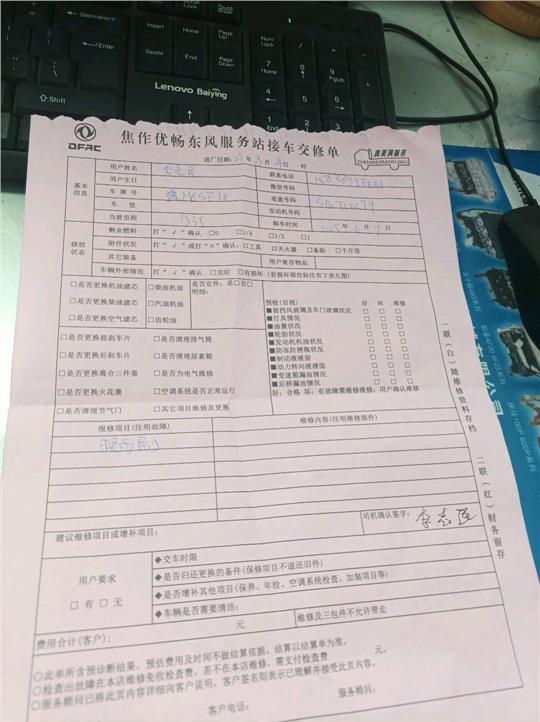 Backspace
Insert
Home
Page Up
Num Lock
Enter
Delete
End
Page Down
7 Home
8
9 PgUp
Lenovo Baiying
4
5
6
Shift
1 End
2
3
DFAC
焦作优畅东风服务站接车交修单
真美满服务
ZHENMEIMANFUWU
进厂日期: 年 月 日 时
基本信息
用户姓名
联系电话
用户生日
微信号码
车牌号
底盘号码
车型
发动机号码
当前里程
购车时间
修前状态
剩余燃料 打“√”确认 □0 □1/4 □1/2 □1
附件状况 打“√”或打“×”确认:□工具 □灭火器 □备胎 □千斤顶
其它装备 用户寄存物品
车辆外部情况 打“√”确认 □完好 □有损坏(有损坏部位标注有下表左图)
□是否更换机油滤芯 □柴油机油 是否定件: 是□否□
□是否更换柴油滤芯 □汽油机油 明细:
□是否更换空气滤芯 □齿轮油
□是否更换前刹车片 □是否清理排气筒
□是否更换后刹车片 □是否清理尿素箱
□是否更换离合三件套 □是否为电气维修
□是否更换火花塞 □空调系统是否正常运行
□是否清理节气门 □其它项目维修及更换
预检(目视) 好 坏 维修
■前挡风玻璃及车门玻璃状况 □ □ □
■灯具情况 □ □ □
■油量状况 □ □ □
■轮胎状况 □ □ □
■发动机机油状况 □ □ □
■防冻防锈瓶状况 □ □ □
■制动液液面 □ □ □
■动力转向液液面 □ □ □
■变速箱漏油情况 □ □ □
■后桥漏油情况 □ □ □
好:合格 坏:有故障需维修维修:用户确认维修
报修项目(注明故障)
维修内容(注明维修部件)
司机确认签字:
李志
建议维修项目或增补项目:
用户要求
□有 □无
◆交车时限
◆是否归还更换的备件(保修项目不退还旧件)
◆是否增补其他项目(保养、年检、空调系统检查、加装项目等)
◆车辆是否需要清洁:
费用合计(客户): 元
维修及三包件不允许带走
元
○此单所含预诊断结果,预估费用及时间不做结算依据,结算以结算单为准。
○检查出故障在本店维修免收检查费,若不在本店维修,需支付检查费 元。
○服务顾问已将此页内容详细向客户说明,客户签名则表示已理解并接受此页内容。
客户电话:
服务顾问:
一联(白)随维修资料存档
二联(红)财务留存